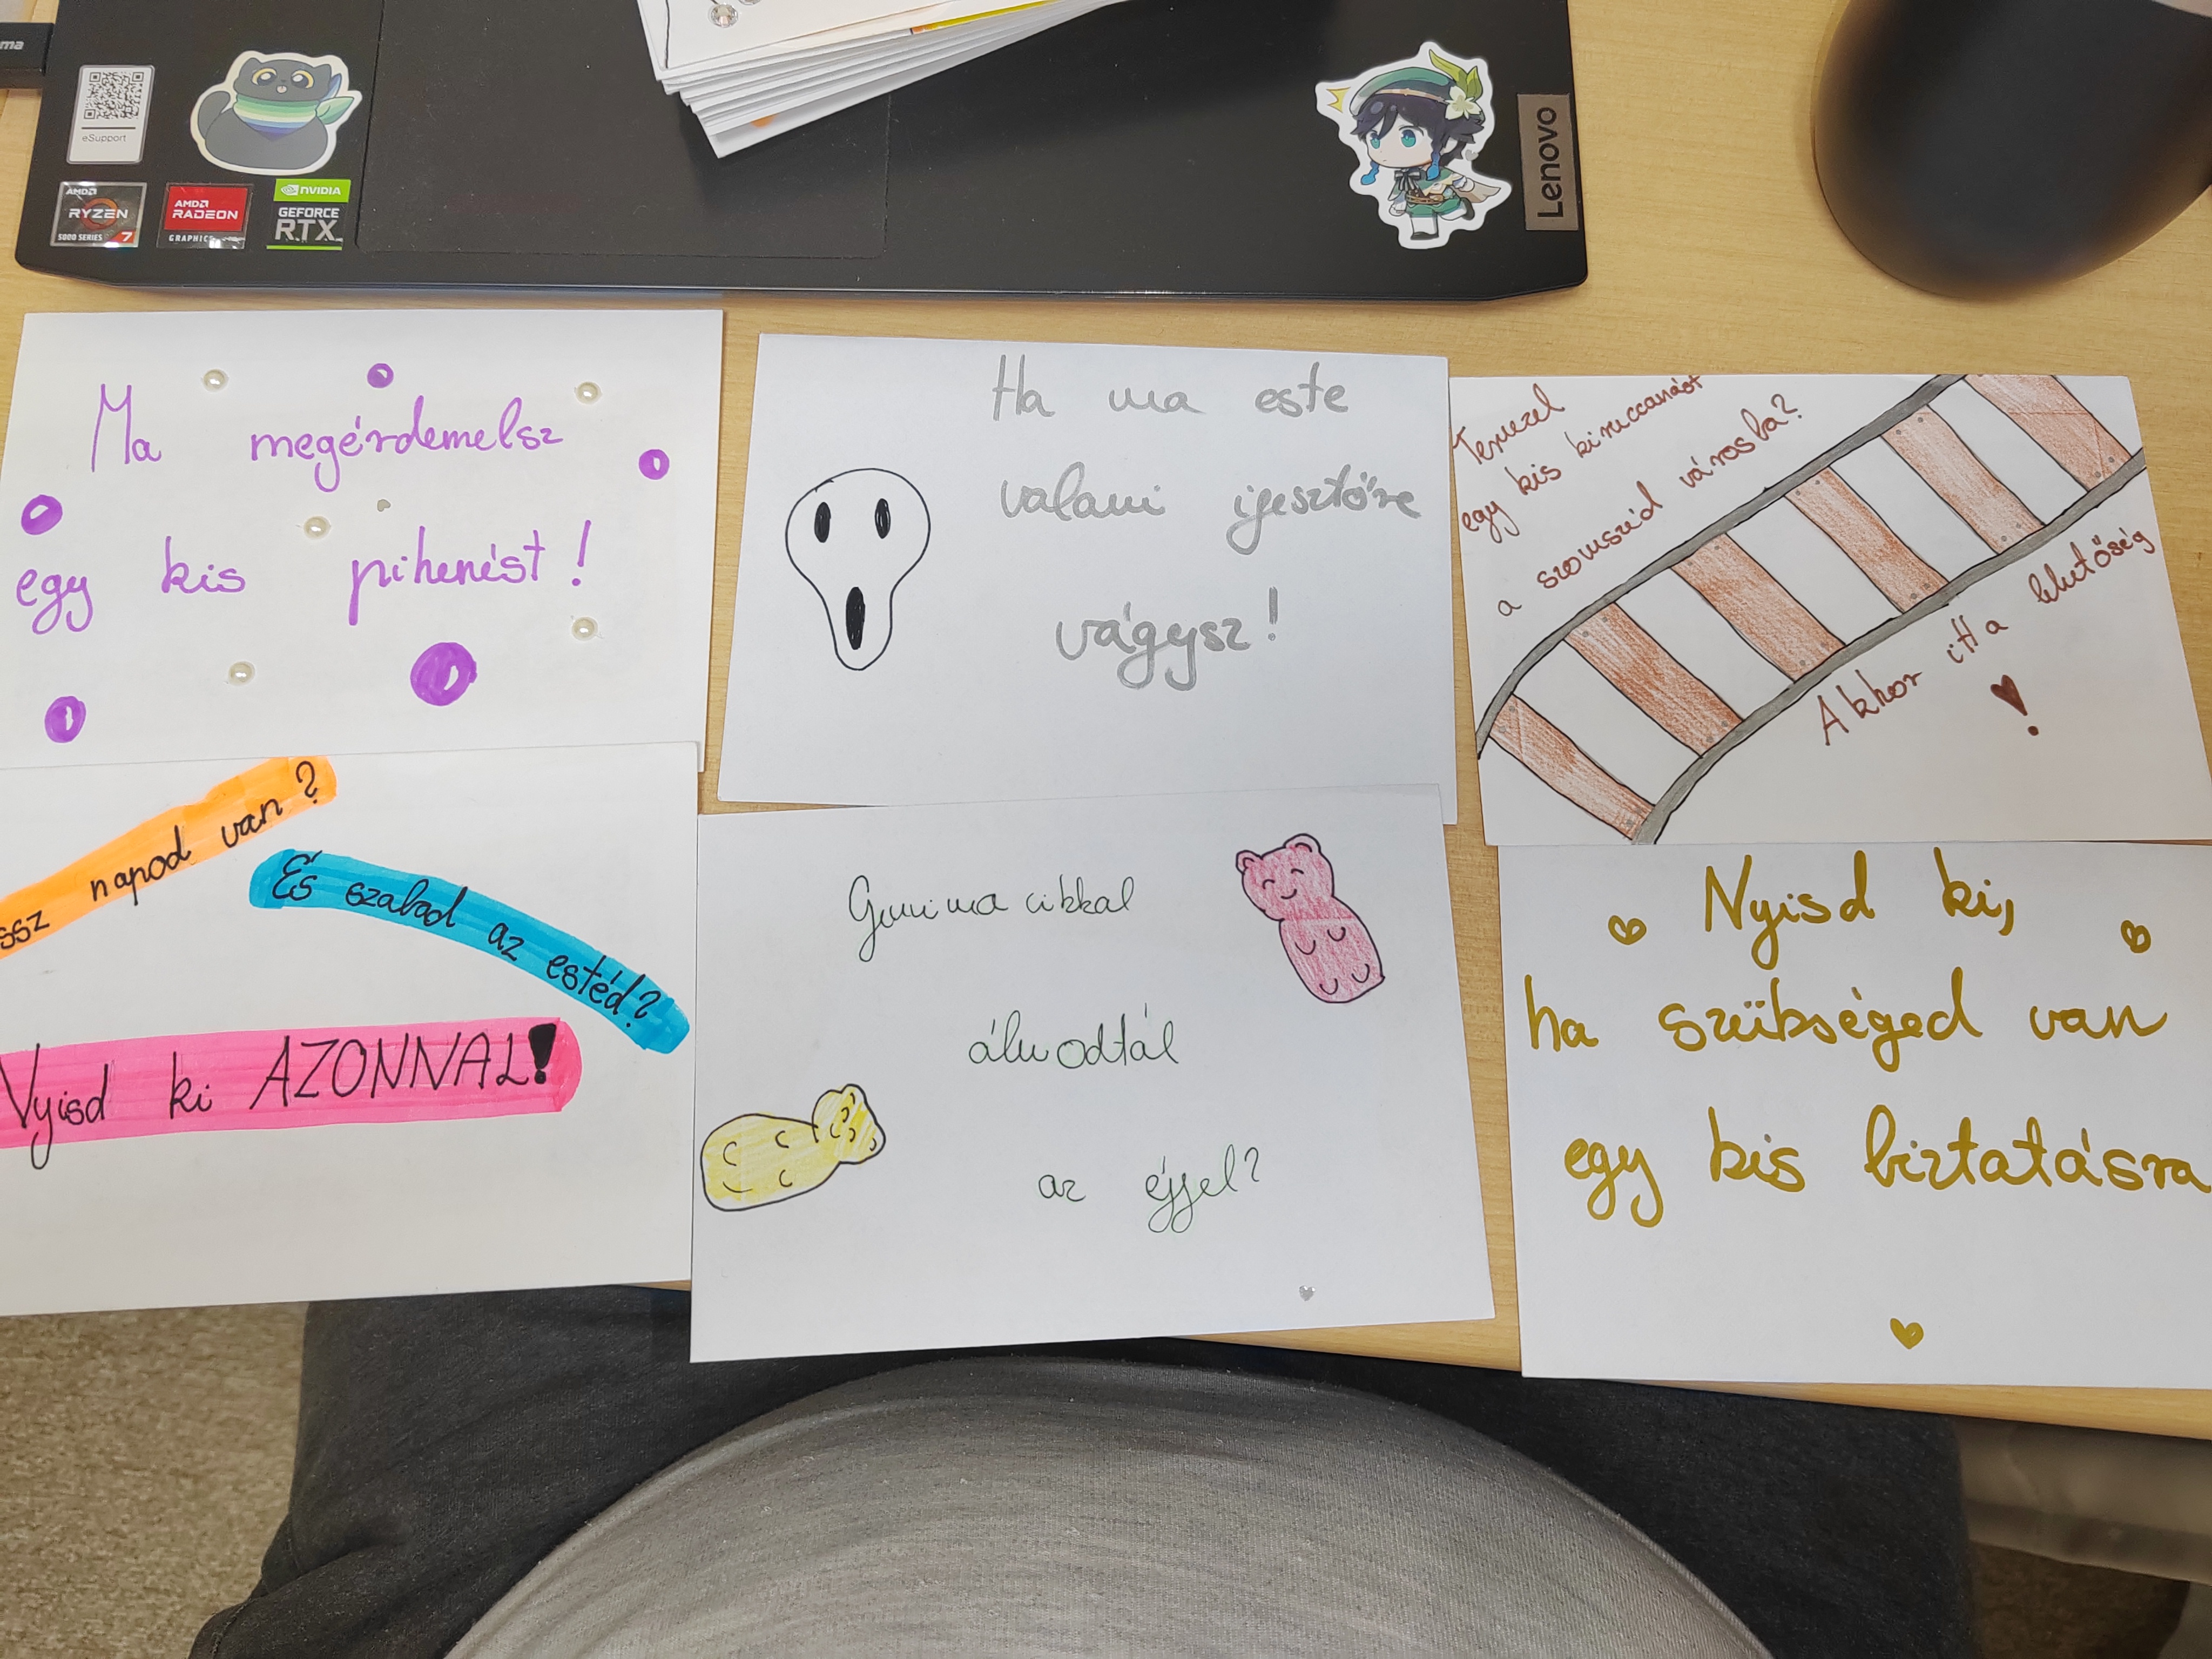 ma
eSupport
AMD
RYZEN
5000 SERIES 7
AMD
RADEON
GRAPHICS
NVIDIA
GEFORCE
RTX
Lenovo
Ma megérdemelsz
egy kis pihenést!
Ha ma este
valami ijesztőre
vágysz!
Tervezel
egy kis kiruccanást
a szomszéd városba?
Akkor itt a lehetőség
!
ssz napod van?
És szabad az estéd?
Nyisd ki AZONNAL!
Gumimacikkal
álmodtál
az éjjel?
Nyisd ki,
ha szükséged van
egy kis biztatásra